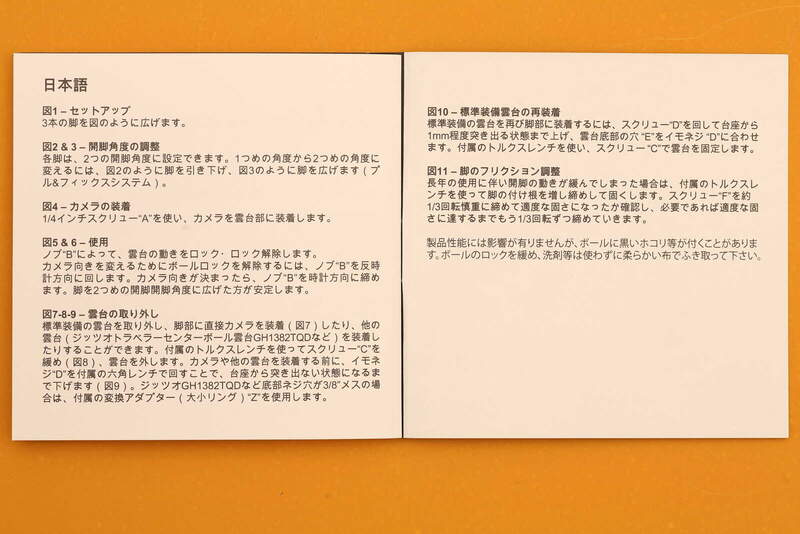 日本語
図1 – セットアップ
3本の脚を図のように広げます。
図2 & 3 – 開脚角度の調整
各脚は、2つの開脚角度に設定できます。1つめの角度から2つめの角度に
変えるには、図2のように脚を引き下げ、図3のように脚を広げます（プ
ル&フィックスシステム）。
図4 – カメラの装着
1/4インチスクリュー“A”を使い、カメラを雲台部に装着します。
図5 & 6 – 使用
ノブ“B”によって、雲台の動きをロック・ロック解除します。
カメラ向きを変えるためにボールロックを解除するには、ノブ“B”を反時
計方向に回します。カメラ向きが決まったら、ノブ“B”を時計方向に締め
ます。脚を2つめの開脚開脚角度に広げた方が安定します。
図7-8-9 – 雲台の取り外し
標準装備の雲台を取り外し、脚部に直接カメラを装着（図7）したり、他の
雲台（ジッツオトラベラーセンターボール雲台GH1382TQDなど）を装着し
たりすることができます。付属のトルクスレンチを使ってスクリュー“C”を
緩め（図8）、雲台を外します。カメラや他の雲台を装着する前に、イモネ
ジ“D”を付属の六角レンチで回すことで、台座から突き出ない状態になるま
で下げます（図9）。ジッツオGH1382TQDなど底部ネジ穴が3/8”メスの場
合は、付属の変換アダプター（大小リング）“Z”を使用します。
図10 – 標準装備雲台の再装着
標準装備の雲台を再び脚部に装着するには、スクリュー“D”を回して台座から
1mm程度突き出る状態まで上げ、雲台底部の穴 “E”をイモネジ “D”に合わせ
ます。付属のトルクスレンチを使い、スクリュー “C”で雲台を固定します。
図11 – 脚のフリクション調整
長年の使用に伴い開脚の動きが緩んでしまった場合は、付属のトルクスレ
ンチを使って脚の付け根を増し締めして固くします。スクリュー“F”を約
1/3回転慎重に締めて適度な固さになったか確認し、必要であれば適度な固
さに達するまでもう1/3回転ずつ締めていきます。
製品性能には影響が有りませんが、ボールに黒いホコリ等が付くことがありま
す。ボールのロックを緩め、洗剤等は使わずに柔らかい布でふき取って下さい。